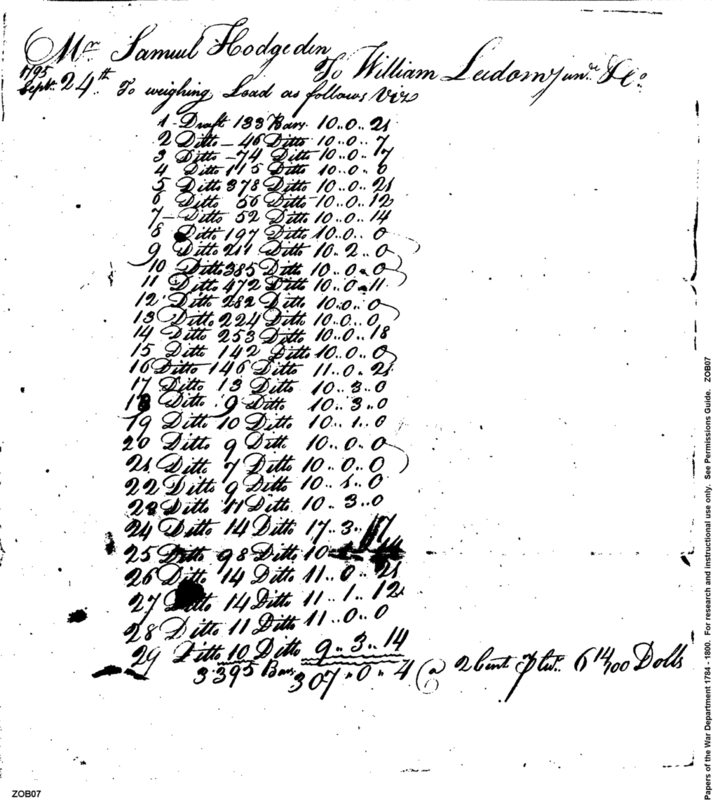 Mr Samuel Hodgeden
To William Leedom junr. & Co.
1795
Sept. 24th To weighing Load as follows Viz
1 Draft 133 Bars 10..0..21
2 Ditto 46 Ditto 10..0..7
3 Ditto 74 Ditto 10..0..17
4 Ditto 115 Ditto 10..0..0
5 Ditto 378 Ditto 10..0..21
6 Ditto 56 Ditto 10..0..12
7 Ditto 52 Ditto 10..0..14
8 Ditto 197 Ditto 10..0..0
9 Ditto 211 Ditto 10..2..0
10 Ditto 385 Ditto 10..0..0
11 Ditto 472 Ditto 10..0..11
12 Ditto 282 Ditto 10..0..0
13 Ditto 224 Ditto 10..0..0
14 Ditto 253 Ditto 10..0..18
15 Ditto 142 Ditto 10..0..0
16 Ditto 146 Ditto 11..0..21
17 Ditto 13 Ditto 10..3..0
18 Ditto 9 Ditto 10..3..0
19 Ditto 10 Ditto 10..1..0
20 Ditto 9 Ditto 10..0..0
21 Ditto 7 Ditto 10..0..0
22 Ditto 9 Ditto 10..1..0
23 Ditto 11 Ditto 10..3..0
24 Ditto 14 Ditto 17..3..
25 Ditto 98 Ditto 10
26 Ditto 14 Ditto 11..0..21
27 Ditto 14 Ditto 11..1..12
28 Ditto 11 Ditto 11..0..0
29 Ditto 10 Ditto 9..3..14
3395 Bars 307..0..4 @ 2 Cent 6 14/100 Dolls
ZOB07
Papers of the War Department 1784 - 1800. For research and instructional use only. See Permissions Guide. ZOB07